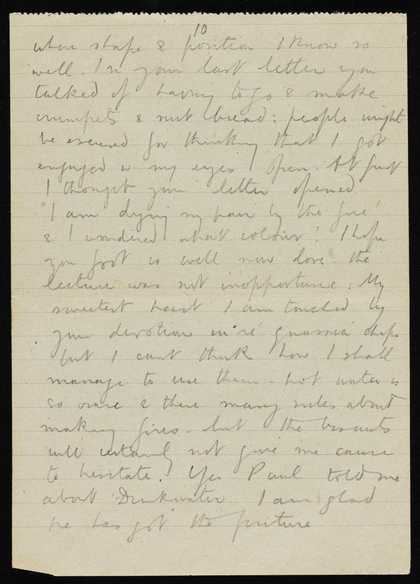 10
whose shape & position I know so
well. In your last letter you
talked of having to go & make
crumpets & nut bread: people might
be excused for thinking that I got
engaged w my eyes open. At first
I thought your letter opened
'I am drying my hair by the fire'
& I wondered what colour! I hope
your foot is well now love. the
lecture was not inopportune. My
sweetest heart I am touched by
your devotion in re quassia chips
but I cant think how I shall
manage to use them - hot water is
so scarce & there many rules about
making fires - but the biscuits
will certainly not give me cause
to hesitate. Yes Paul told me
about Drinkwater I am glad
he has got the picture